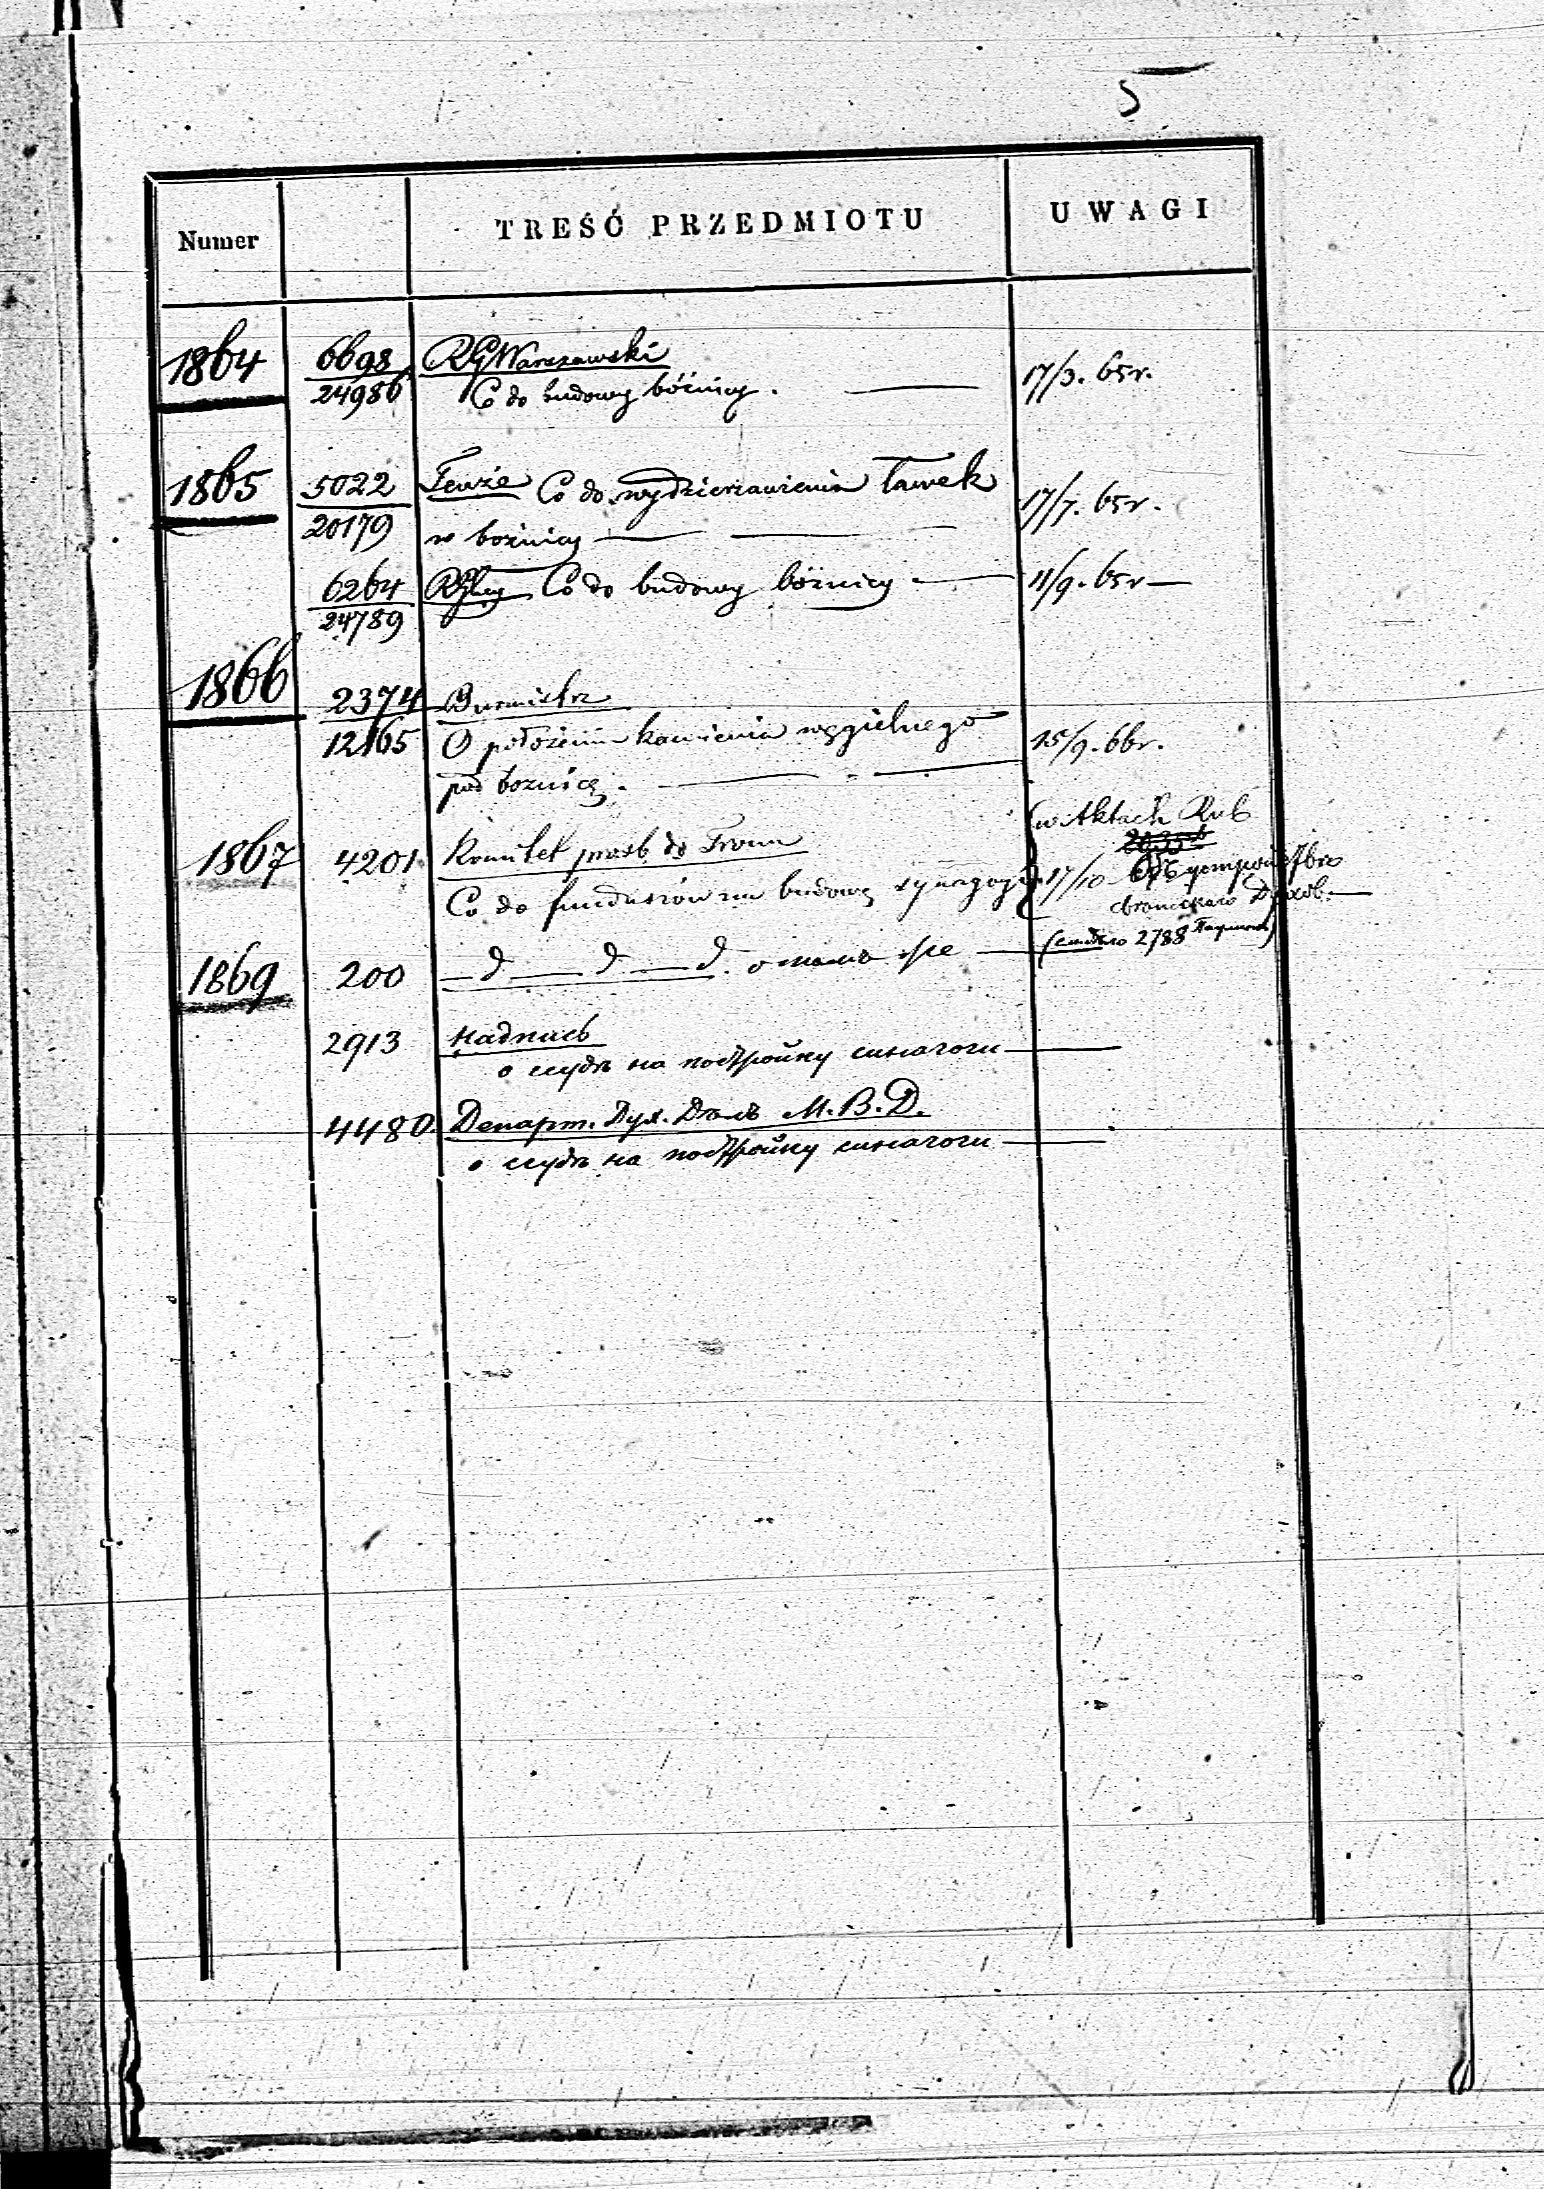 5
Numer TREŚĆ PRZEDMIOTU UWAGI
1864 6698 RGWarszawski
24986 Co do budowy bóźnicy. 17/3. 65r.
1865 5022 Tenże Co do wydzierżawienia ławek 17/7. 65r.
20179 w bożnicy
6264 Co do budowy bóżnicy 11/9. 65r
24789
1866 2374 Burmistrz
12165 O położeniu kamienia węgielnego 15/9. 66r.
pod bożnicę.
(w Aktach Rub
1867 4201 Komitet prośb do Tronu
Co do funduszów na budowę synagogi 17/10 Объ устройство
Духов.
1869 200 d d d. о томъ же (2788
2913 Надпись
о ссудѣ на постройку синагоги
4480 Департ. Дух. Дѣлъ М.В.Д.
о ссудѣ на постройку синагоги